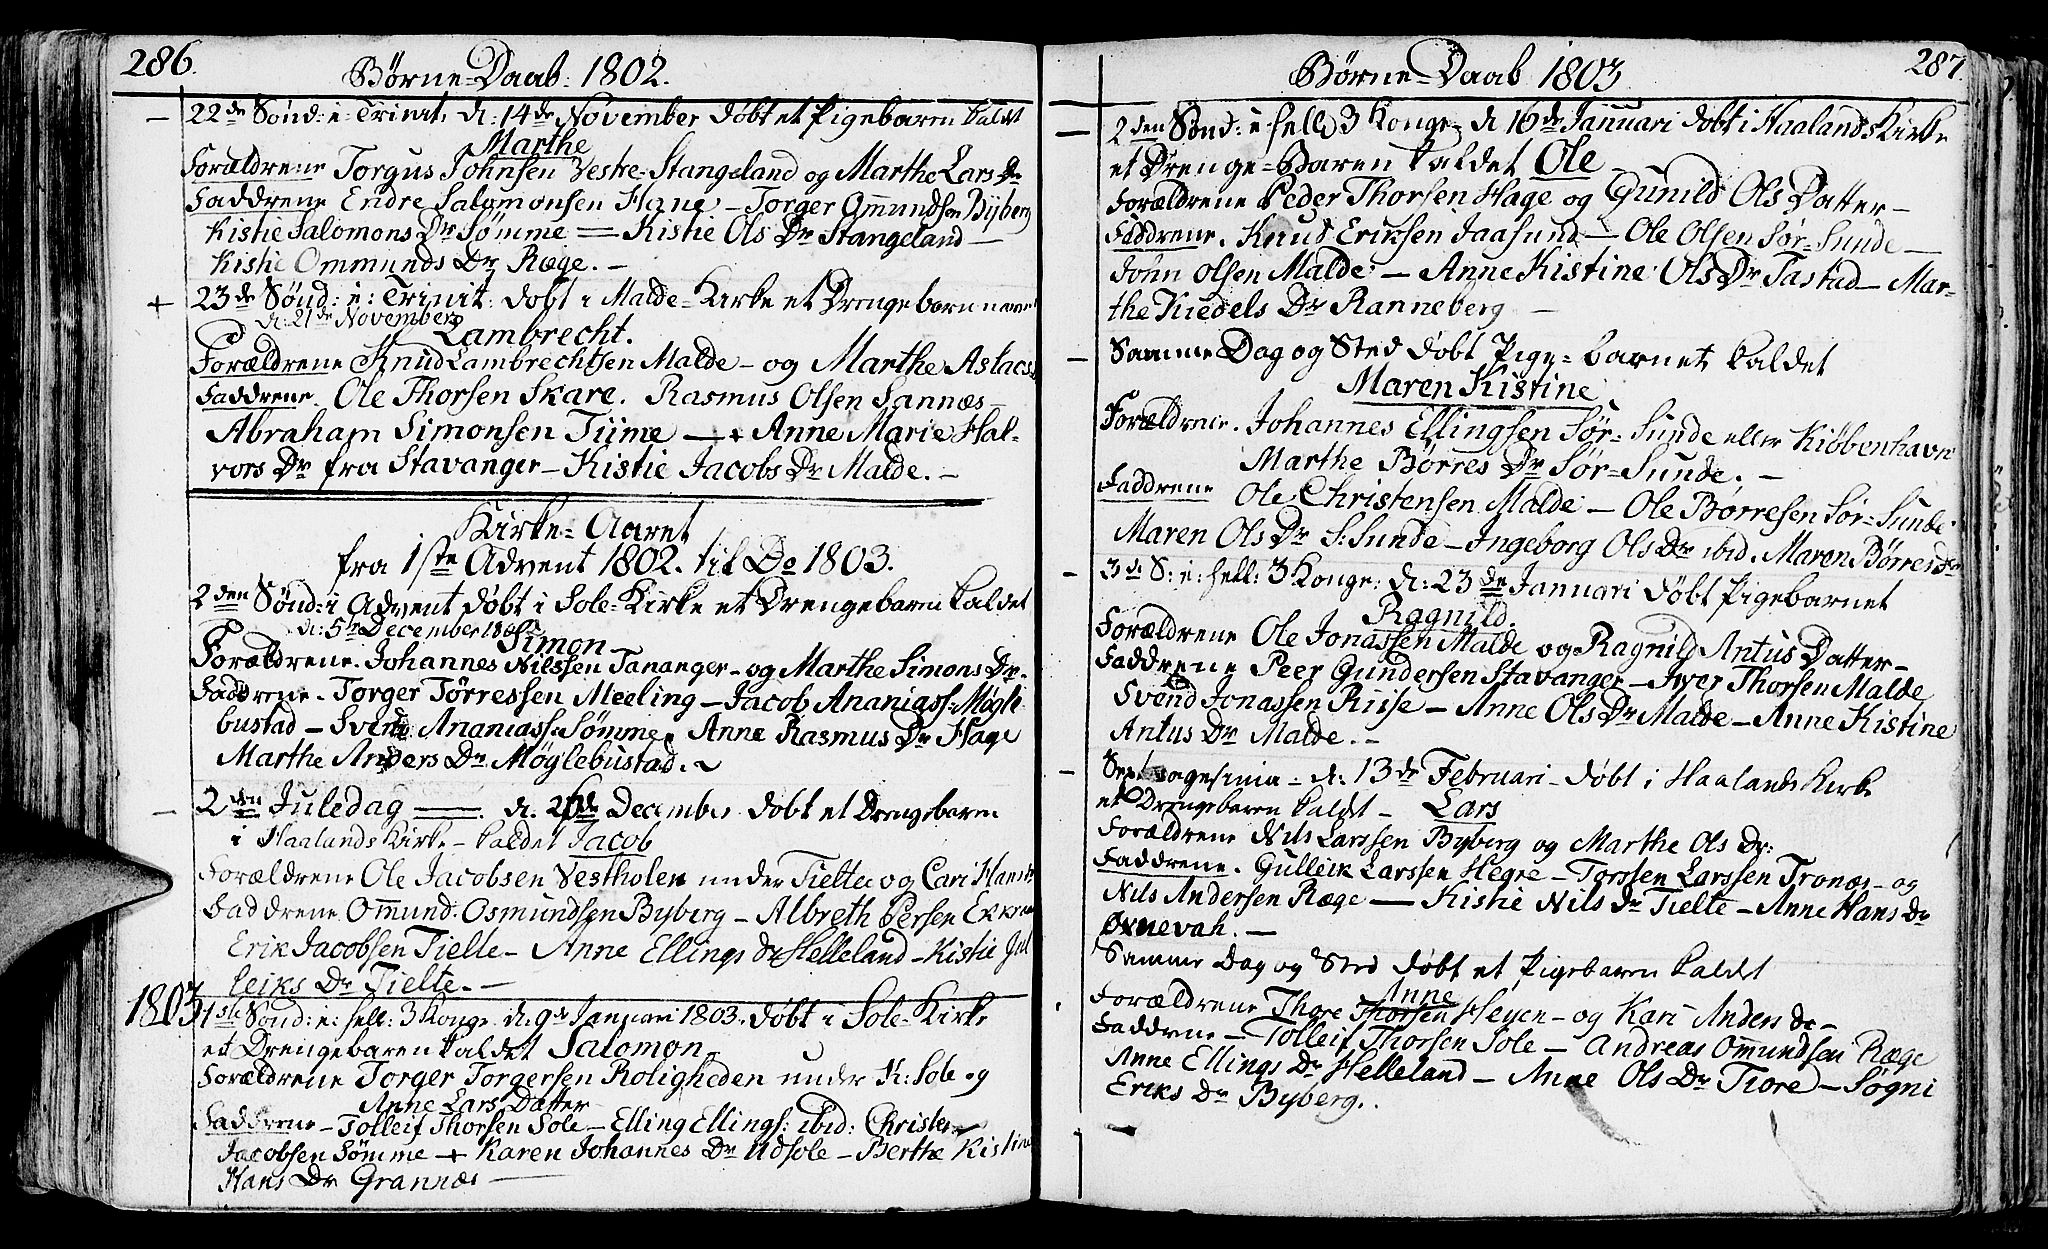 286.
Børne-Daab: 1802.
22de Sønd: e: Trinit: d: 14de November døbt et Pigebaren kaldt
Marthe
Forældrene Torgus Johnsen Vestre-Stangeland og Marthe Lars Dr
Faddrene Endre Salomonsen Hane - Torger Ommundsen Byberg
Kistie Salomons Dr Sømme = Kistie Ols Dr Stangeland -
Kistie Ommunds Dr Ræge. -
23de Sønd: e: Trinit: døbt i Malde-Kirke et Drengebarn
d: 21de November
Lambrecht.
Forældrene Knud Lambrechtsen Malde - og Marthe
Faddrene. Ole Thorsen Skare. Rasmus Olsen Sannæs -
Abraham Simonsen Tiime - + Anne Marie Hal-
vors Dr fra Stavanger - Kistie Jacobs Dr Malde. -
Kirke-Aaret
fra 1ste Advent 1802. til Do 1803.
2den Sønd: i Advent døbt i Sole-Kirke et Drengebaren kaldet
d: 5te December
Simon
Forældrene. Johannes Nilssen Tananger - og Marthe Simons Dr.
Faddrene - Torger Tørressen Meeling - Jacob Ananiass: Møgle
bustad - Svend Ananiass: Sømme. Anne Rasmus Dr Hage
Marthe Anders Dr Møglebustad.
2den Juledag = d. 26de December døbt et Drengebaren
i Haalands Kirke - kaldet Jacob
Forældrene Ole Jacobsen Vestholen under Tielte og Cari Hans
Faddrene Ommund Osmundsen Byberg - Albreth Persen
Erik Jacobsen Tielte - Anne Ellings Dr Helleland - Kistie Gul
leiks Dr Tielte. -
1803
1ste Sønd: e: hell: 3 Konge d: 9de Januari 1803. døbt i Sole-Kirke
et Drengebaren kaldet Salomon
Forældrene Torger Torgersen Roligheden under K: Sole og
Anne Lars Datter
Faddrene - Tolleif Thorsen Sole - Elling Ellings: ibid: Christen
Jacobsen Sømme + Karen Johannes Dr Udsole - Berthe Kistine
Hans Dr Grannæs
Børne-Daab 1803
287.
2den Sønd: e hell 3 Konge d 16de Januari døbt i Haalands Kirke
et Drenge-Baren kaldet Ole
Forældrene Peder Thorsen Hage og Gunild Ols Datter -
Faddrene. Knud Eriksen Jaasund - Ole Olsen Sør-Sunde -
Joun Olsen Malde - Anne Kistine Ols Dr Tastad - Mar-
the Kiedels Dr Ranneberg -
Samme Dag og Sted døbt Pige-barnet kaldet
Maren Kistine
Forældrene. Johannes Ellingsen Sør-Sunde eller Kiøbenhavn
Marthe Børres Dr Sør-Sunde. -
Faddrene Ole Christensen Malde - Ole Børresen Sør-Sunde
Maren Ols Dr S: Sunde - Ingeborg Ols Dr ibid. Maren Børres Dr
3de S: e: hell: 3 Konge: d: 23de Januari døbt Pigebarnet
Ragnild.
Forældrene Ole Jonassen Malde og Ragnild Antus Datter -
Faddrene Peer Gundersen Stavanger - Iver Thorsen Malde
Svend Jonassen Risse - Anne Ols Dr Malde - Anne Kistine
Antus Dr Malde. -
d: 13de Februari - døbt i Haalands Kirke
et Drengebaren kaldt - Lars
Forældrene Nils Larssen Byberg og Marthe Ols Dr:
Faddrene. Gulleik Larssen Hegre - Torssen Larssen Tronæs - og
Nils Andersen Ræge - Kistie Nils Dr Tielte - Anne Hans Dr
Øxnevah. -
Samme Dag og Sted døbt et Pigebaren kaldt
Anne
Forældrene Thore Thorsen Heyen - og Kari Anders Dr -
Faddrene - Tolleif Thorsen Sole - Andreas Ommundsen Ræge
Anne Ellings Dr Helleland - Anne Ols Dr Tiore - Søgni
Eriks Dr Byberg.